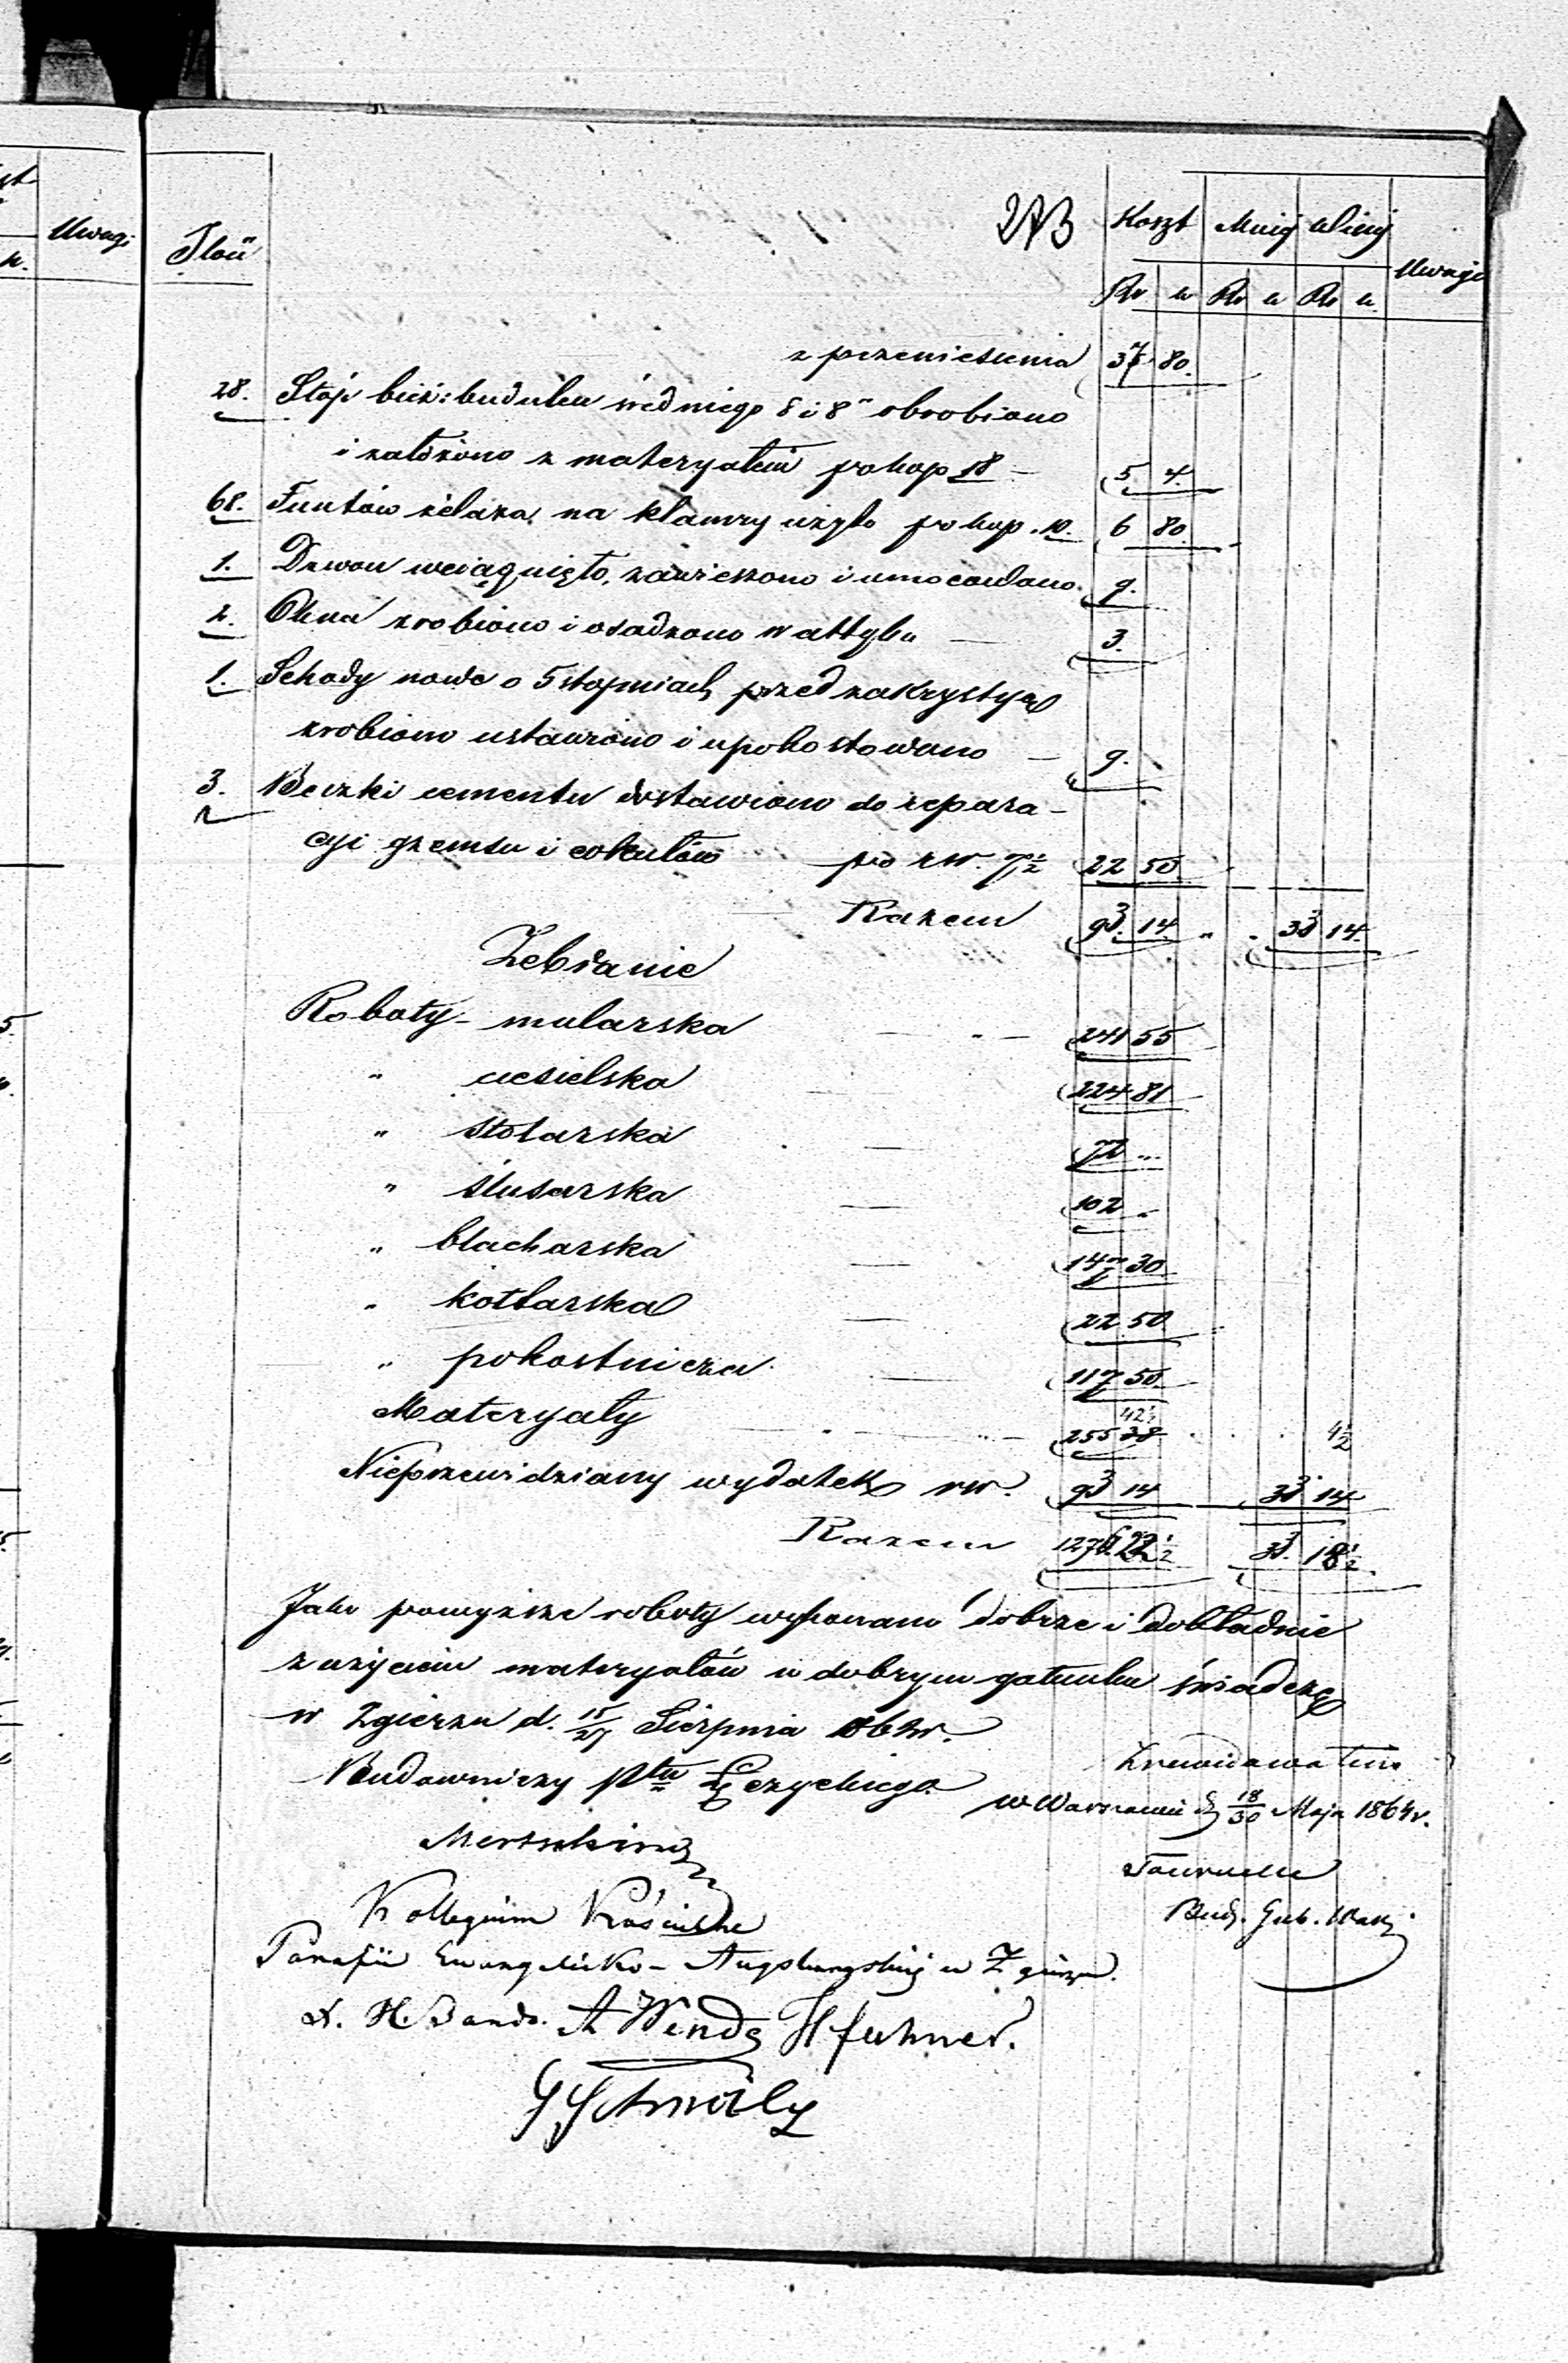 273
Uwagi
Ilość Koszt Mniej Więcej Uwagi
Rs k Rs k Rs k
z przeniesienia 37 80.
28. Stóp bież: budulcu średniego 8 i 8" obrobiono
i założono z materyałem po kop 18 – 5. 4.
68. Funtów żelaza na klamry użyto po kop. 10. 6 80.
1. Dzwon wciągnięto, zawieszono i umocowano. 9.
2. Okna zrobiono i osadzono w attyku — 3.
1. Schody nowe o 5 stopniach przed zakrystyą
zrobiono ustawiono i upokostowano — 9.
3. Beczki cementu dostawiono do repara-
cyi gzemsu i cokułów po rsr. 7½ 22 50.
Razem 93. 14. " " 33 14.
Zebranie
Roboty – mularska " — 241 55
" ciesielska 224 81
" stolarska — 72 "
" ślusarska — 102 "
" blacharska — 147 30
" kotlarska — 22 50
" pokostnicza — 117 50.
Materyały — 255 38 42½ 4½
Nieprzewidziany wydatek rsr. 93 14 33 14
Razem 1276 22½ 33. 18½
Jako powyższe roboty wykonano dobrze i dokładnie
z użyciem materyałów w dobrym gatunku świadczę
w Zgierzu d. 15/27 Sierpnia 1862r.
Budowniczy Ptu Łęczyckiego
Zrewidowałem
w Warszawie d 18/30 Maja 1864r.
Bud. Gub. Warsz.
Kollegium Kościelne
Parafii Ewangelicko – Augsburgskiej w Zgierzu.
A Wende